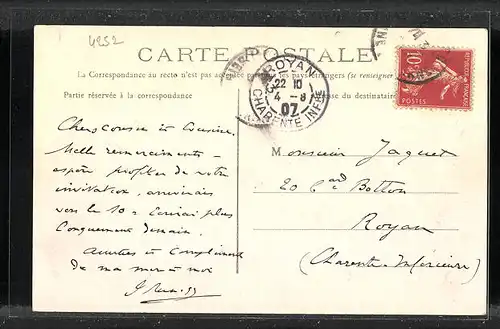 4252
CARTE POSTALE
La Correspondance au recto n'est pas acceptée par tous les pays étrangers (se renseigner
Partie réservée à la correspondance
du destinataire
ROYAN
22 10
4 - 8
07
CHARENTE INFRE
10c
REPUBLIQUE FRANÇAISE
POSTES
Chers cousin & Cousine.
Mille remerciements -
espère profiter de votre
invitation, arriverais
vers le 10 = Ecrirai plus
longuement demain.
Amitiés & Compliments
de ma mère & moi
Monsieur Jaquet
20 Bard Botton
Royan
(Charente-Inférieure)